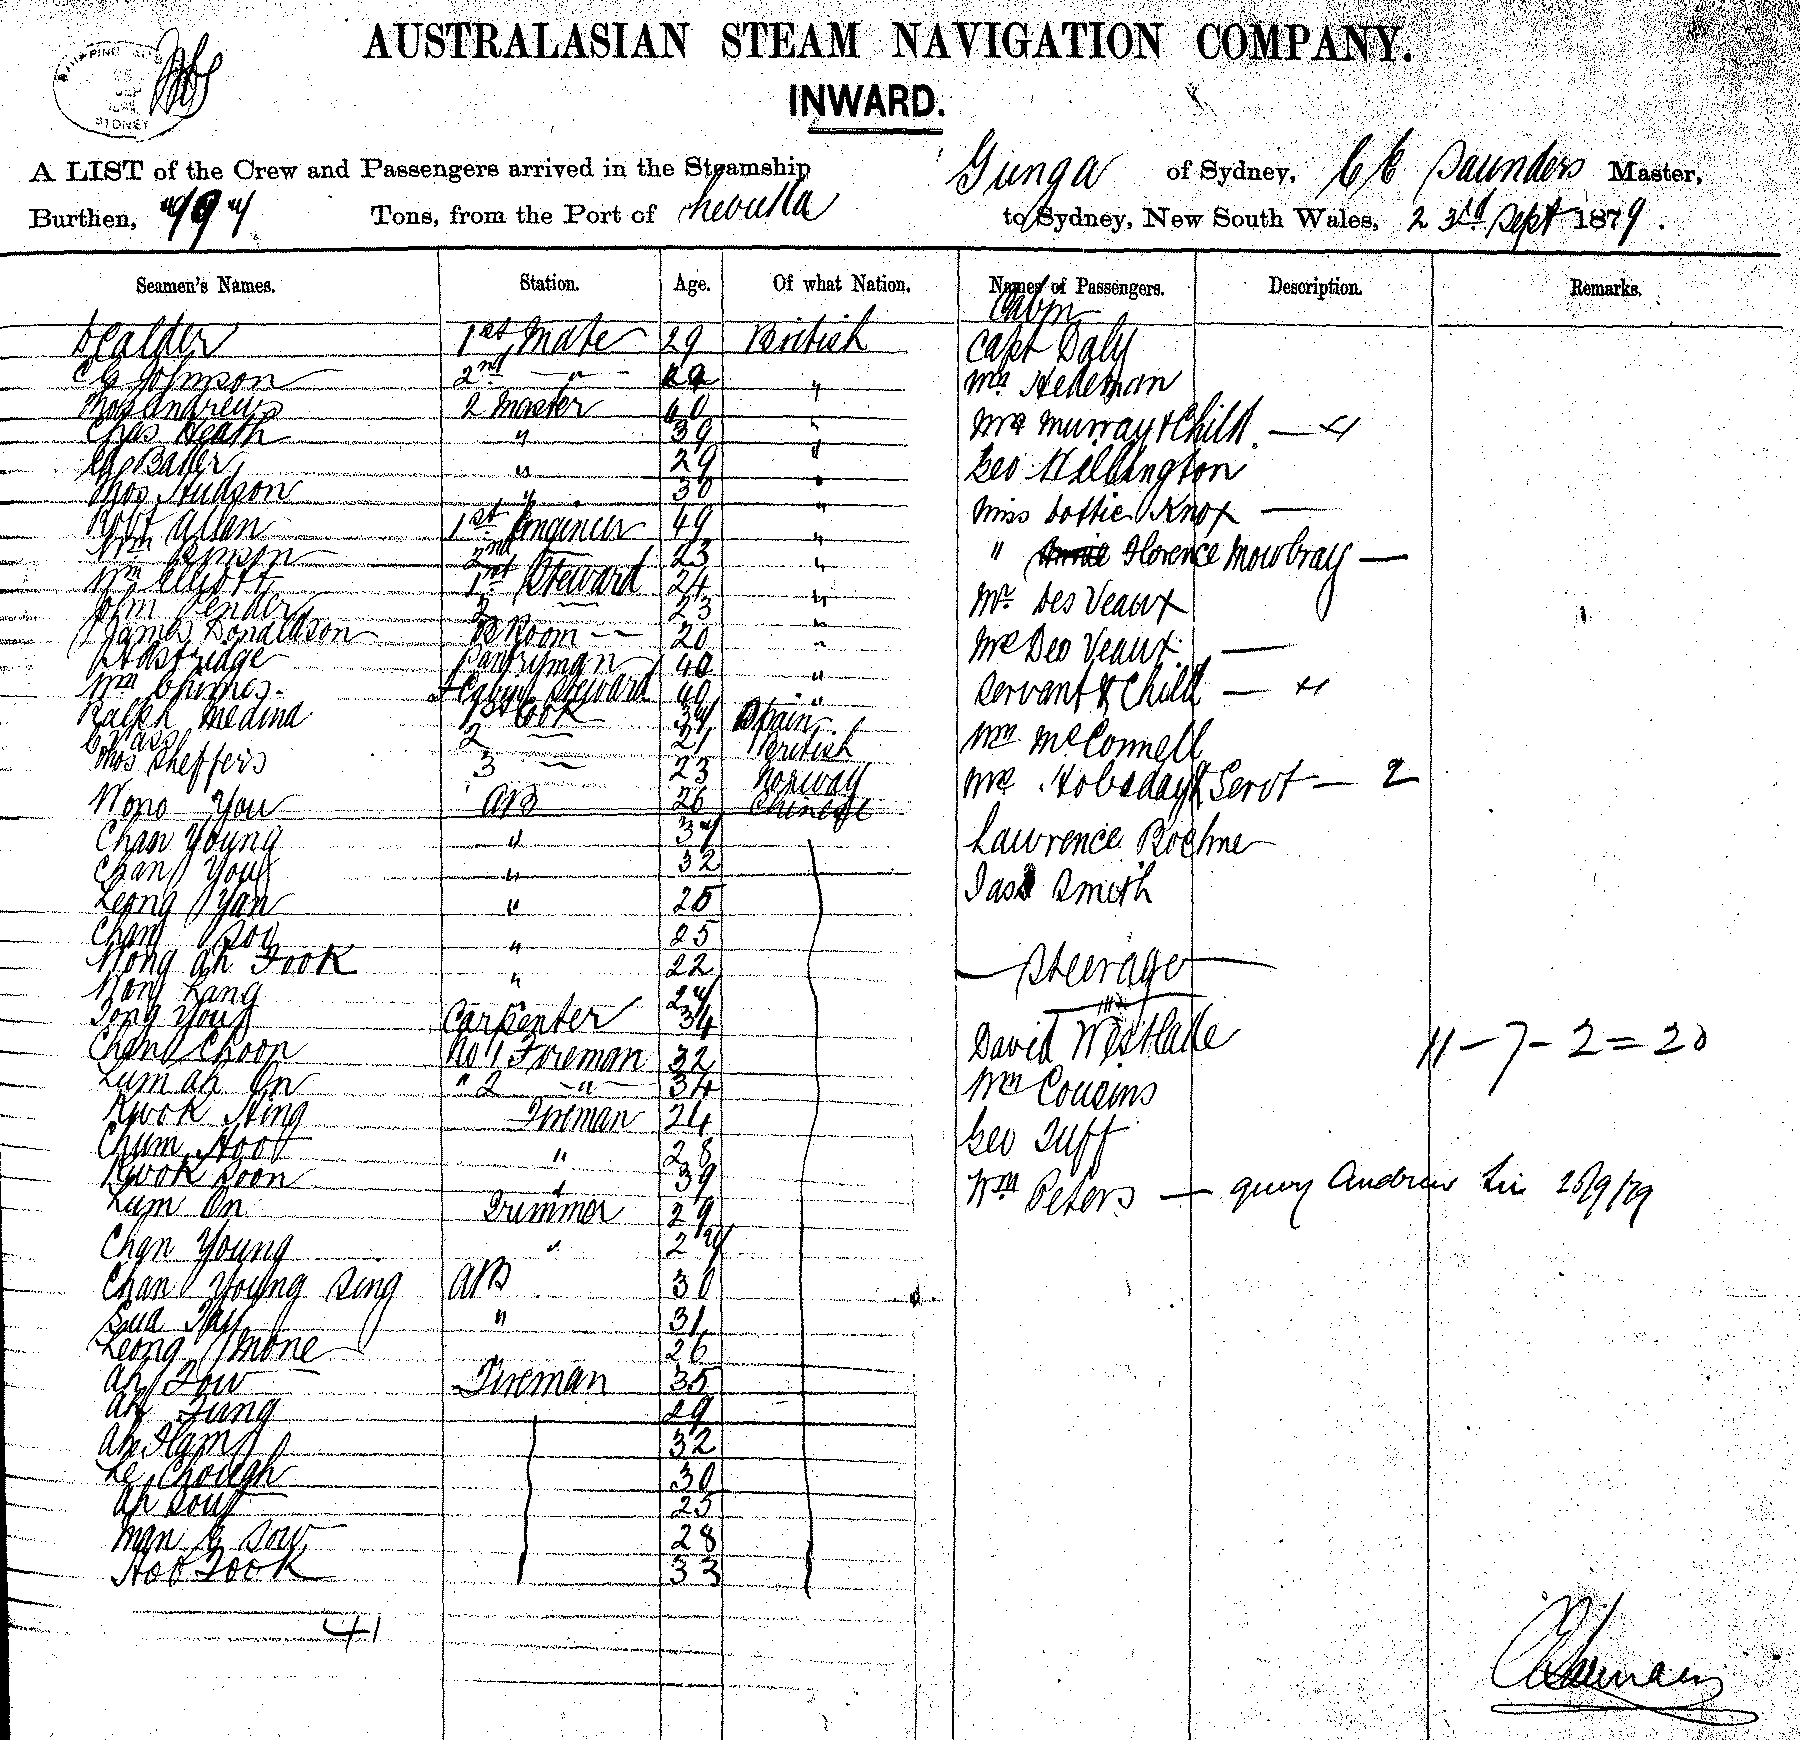 AUSTRALASIAN STEAM NAVIGATION COMPANY.
INWARD.
SHIPPING
SYDNEY
A LIST of the Crew and Passengers arrived in the Steamship Gunga of Sydney, Saunders Master,
Burthen, Tons, from the Port of to Sydney, New South Wales, 23rd Sept 1879.
Seamen's Names. Station. Age. Of what Nation. Names of Passengers. Description. Remarks.
Cabin
1st Mate 29 British Capt Daly
Johnson 2nd " " Mrs Hedeman
Thos Andrews 2 Master 40 "
Chas Heath " 39 " Mrs Murray & Child —
Baker " 29 " Geo
Thos Hudson " 30 "
Robt Allen 1st Engineer 49 " Miss Lottie Knox —
Wm 2nd 23 " " Florence Mowbray —
Wm Elliott 1st Steward 24 "
John 2 23 " Mr Des Veaux
James Donaldson Room 20 " Mrs Des Veaux —
Pantryman 40 "
Wm Steward 40 " Servant & Child —
Ralph Medina 1st Cook 34 Spain
2 21 British Mrs McConnell
Thos Sheffers 3 23 Norway Mrs Hobsday & Servt — 2
You AB 26 Chinese
Chan Young " 34 Lawrence Boehme
Chan You " 32
Leong Yan " 25 Jas Smith
Chan " 25
Wong Ah Fook " 22 Steerage
Wong Lang 24
Tong You Carpenter 34
Chan Choon No 1 Foreman 32 David Westlake 11 - 7 - 2 = 20
Lum Ah On " 2 " 34 Wm Cousins
Kwok Hing Fireman 24
Chum Hoo " 28 Geo Tuff
Kwok Soon " 39 Wm Peters — query Andrew 25/9/79
Lum On Trimmer 29
Chan Young " 24
Chan Young Sing AB 30
" 31
Leong Mone 26
Ah Fow Fireman 35
Ah Fung 29
Ah Ham 32
Le Chough 30
Ah Souy 25
Man Sow 28
Hoo Fook 33
41